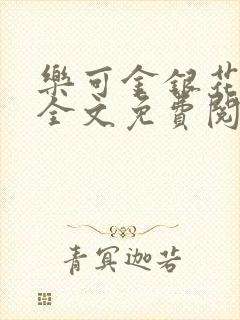 樂可金銀花
全文免費閱
青冥迦若